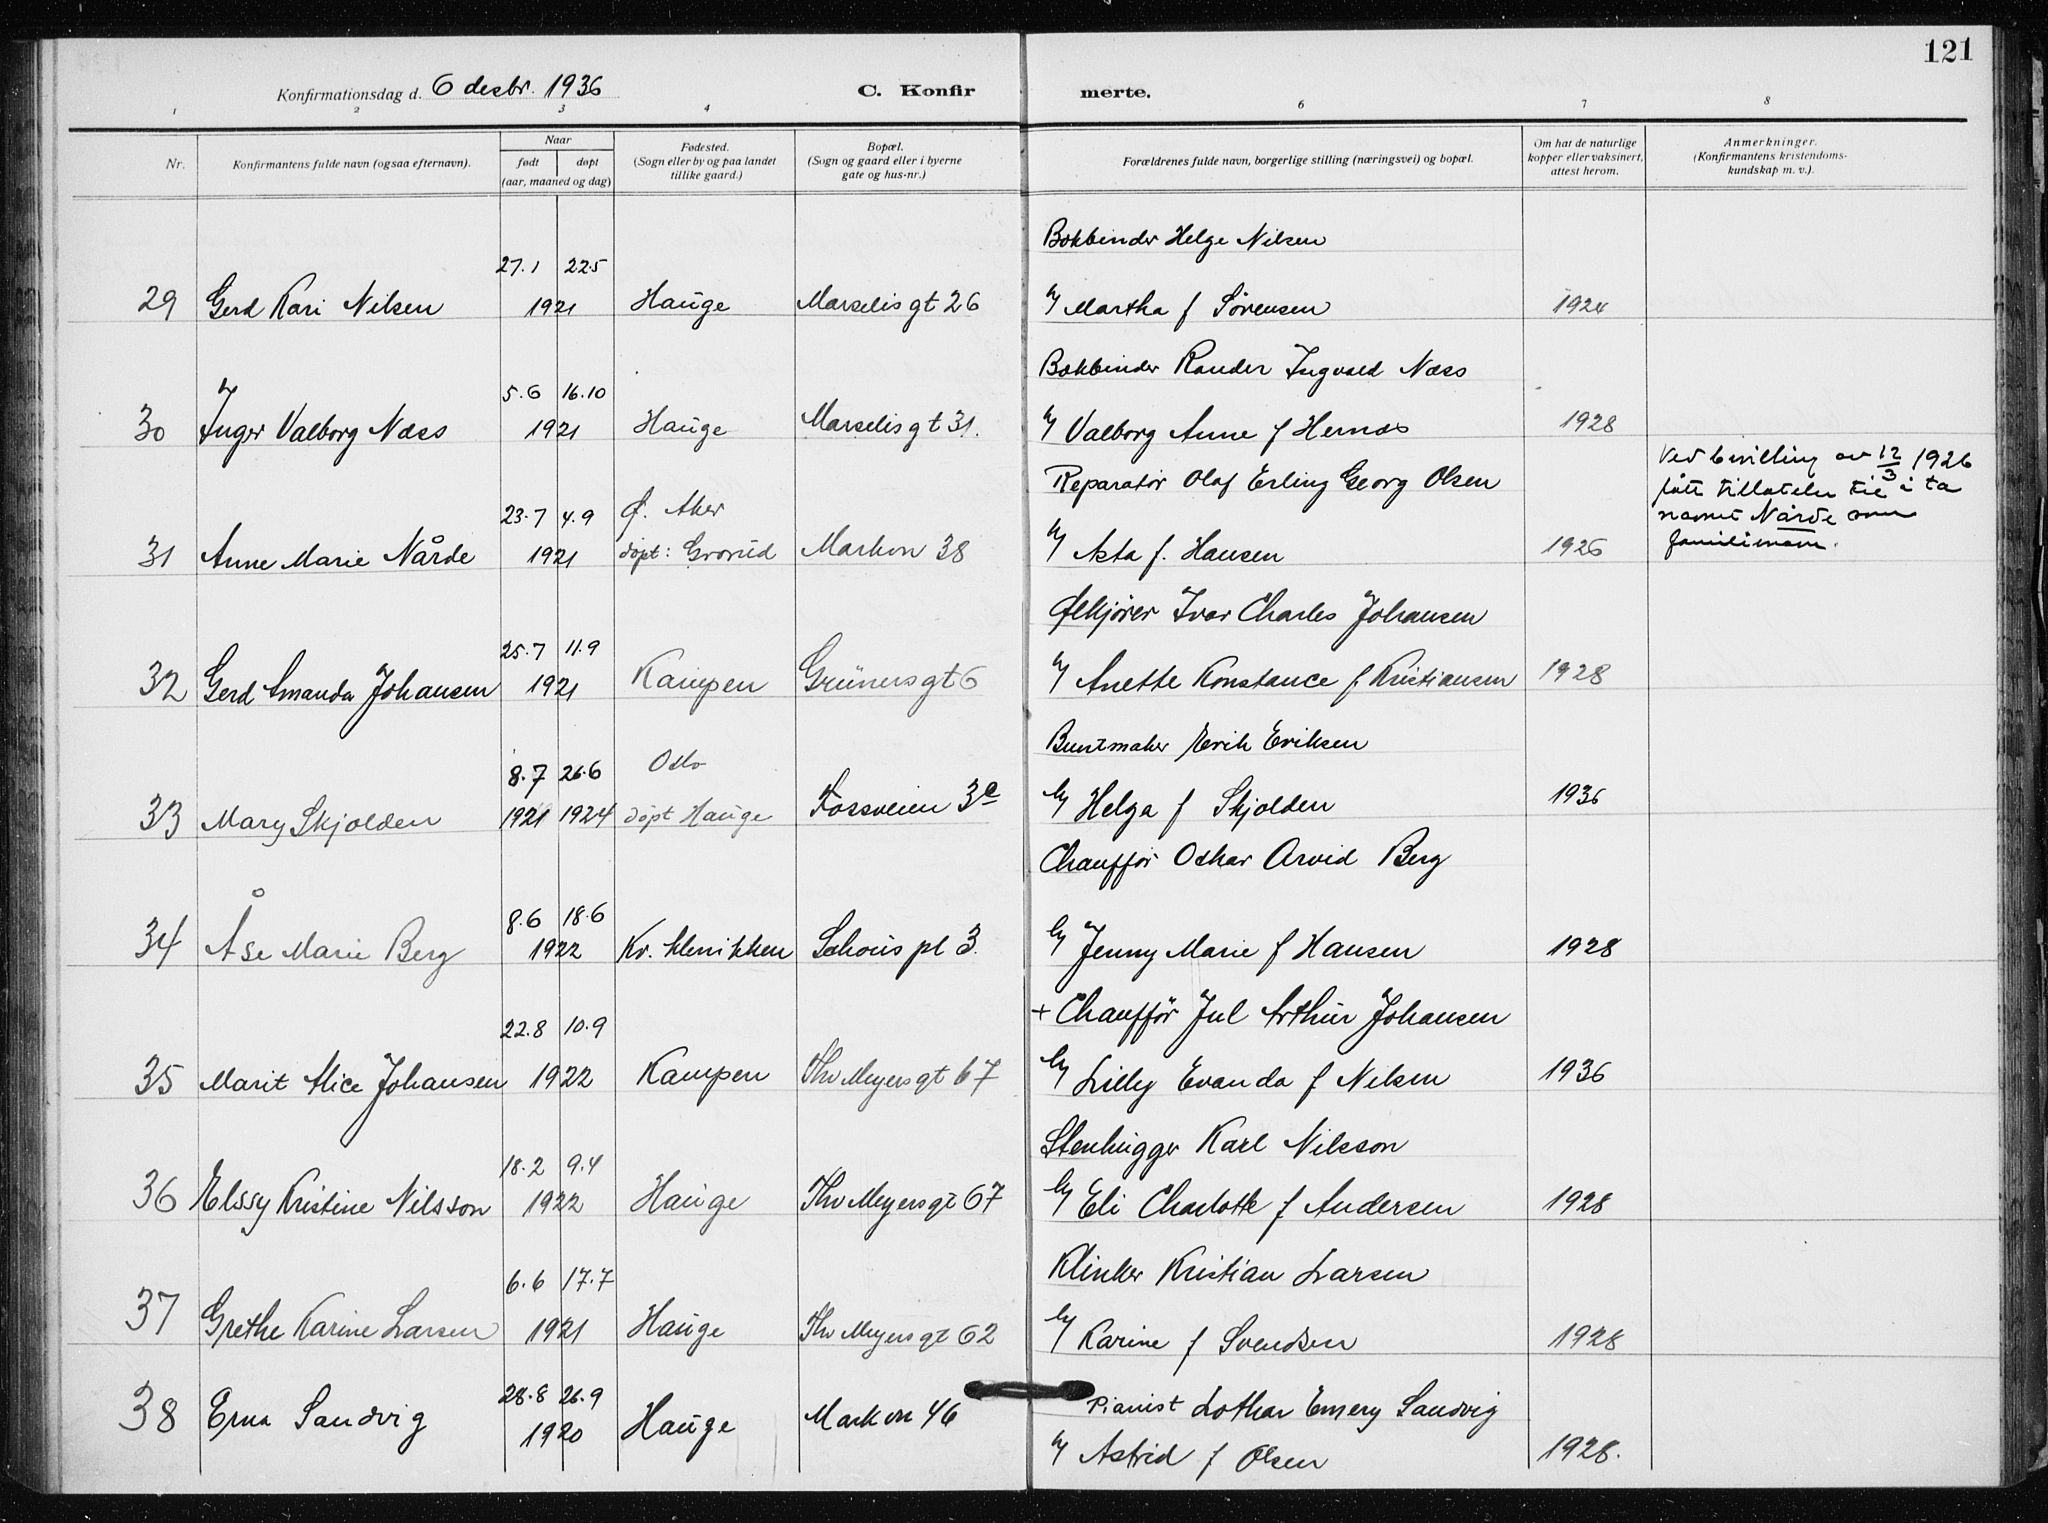 121
Konfirmationsdag d. 6 desbr. 1936 C. Konfirmerte.
1 2 3 4 6 7 8
Nr. Konfirmantens fulde navn (ogsaa efternavn). Naar født døpt (aar, maaned og dag) Fødested. (Sogn eller by og paa landet tillike gaard.) Bopæl. (Sogn og gaard eller i byerne gate og hus-nr.) Forældrenes fulde navn, borgerlige stilling (næringsvei) og bopæl. Om hat de naturlige kopper eller vaksinert, attest herom. Anmerkninger. (Konfirmantens kristendoms- kundskap m. v.).
Bokbinder Helge Nilsen
27.1 22.5
29 Gerd Kari Nilsen 1921 Hauge Marselis gt 26 Martha f Sørensen 1924
Bokbinder Rander Ingvald Næss
5.6 16.10
30 Inger Valborg Næss 1921 Hauge Marselis gt 31. Valborg Anne f Hernæs 1928
Reparatør Olaf Erling Georg Olsen Ved bevilling av 12/3 1926
fått tillatelse til å ta
23.7 4.9 Ø. Aker navnet Nårde som
31 Anne Marie Nårde 1921 døpt: Grorud Markvn 38 Asta f. Hansen 1926 familienavn.
Ølkjører Ivar Charles Johansen
25.7 11.9
32 Gerd Amanda Johansen 1921 Kampen Grünersgt 6 Anette Konstance f Kristiansen 1928
Buntmaker Erik Eriksen
8.7 26.6 Oslo
33 Mary Skjolden 1921 1924 døpt Hauge Fossveien 3c Helga f Skjolden 1936
Chauffør Oskar Arvid Berg
8.6 18.6
34 Åse Marie Berg 1922 Kv. klinikken Schous pl 3. Jenny Marie f Hansen 1928
+ Chauffør Jul Arthur Johansen
22.8 10.9
35 Marit Alice Johansen 1922 Kampen Thv Meyersgt 67 Lilly Evanda f Nilsen 1936
Stenhugger Karl Nilsson
18.2 9.4
36 Elssy Kristine Nilsson 1922 Hauge Thv Meyersgt 67 Eli Charlotte f Andersen 1928
Klinker Kristian Larsen
6.6 17.7
37 Grethe Karine Larsen 1921 Hauge Thv Meyersgt 62 Karine f Svendsen 1928
28.8 26.9 Pianist Lothar Emery Sandvig
38 Erna Sandvig 1920 Hauge Markvn 46 Astrid f Olsen 1928.